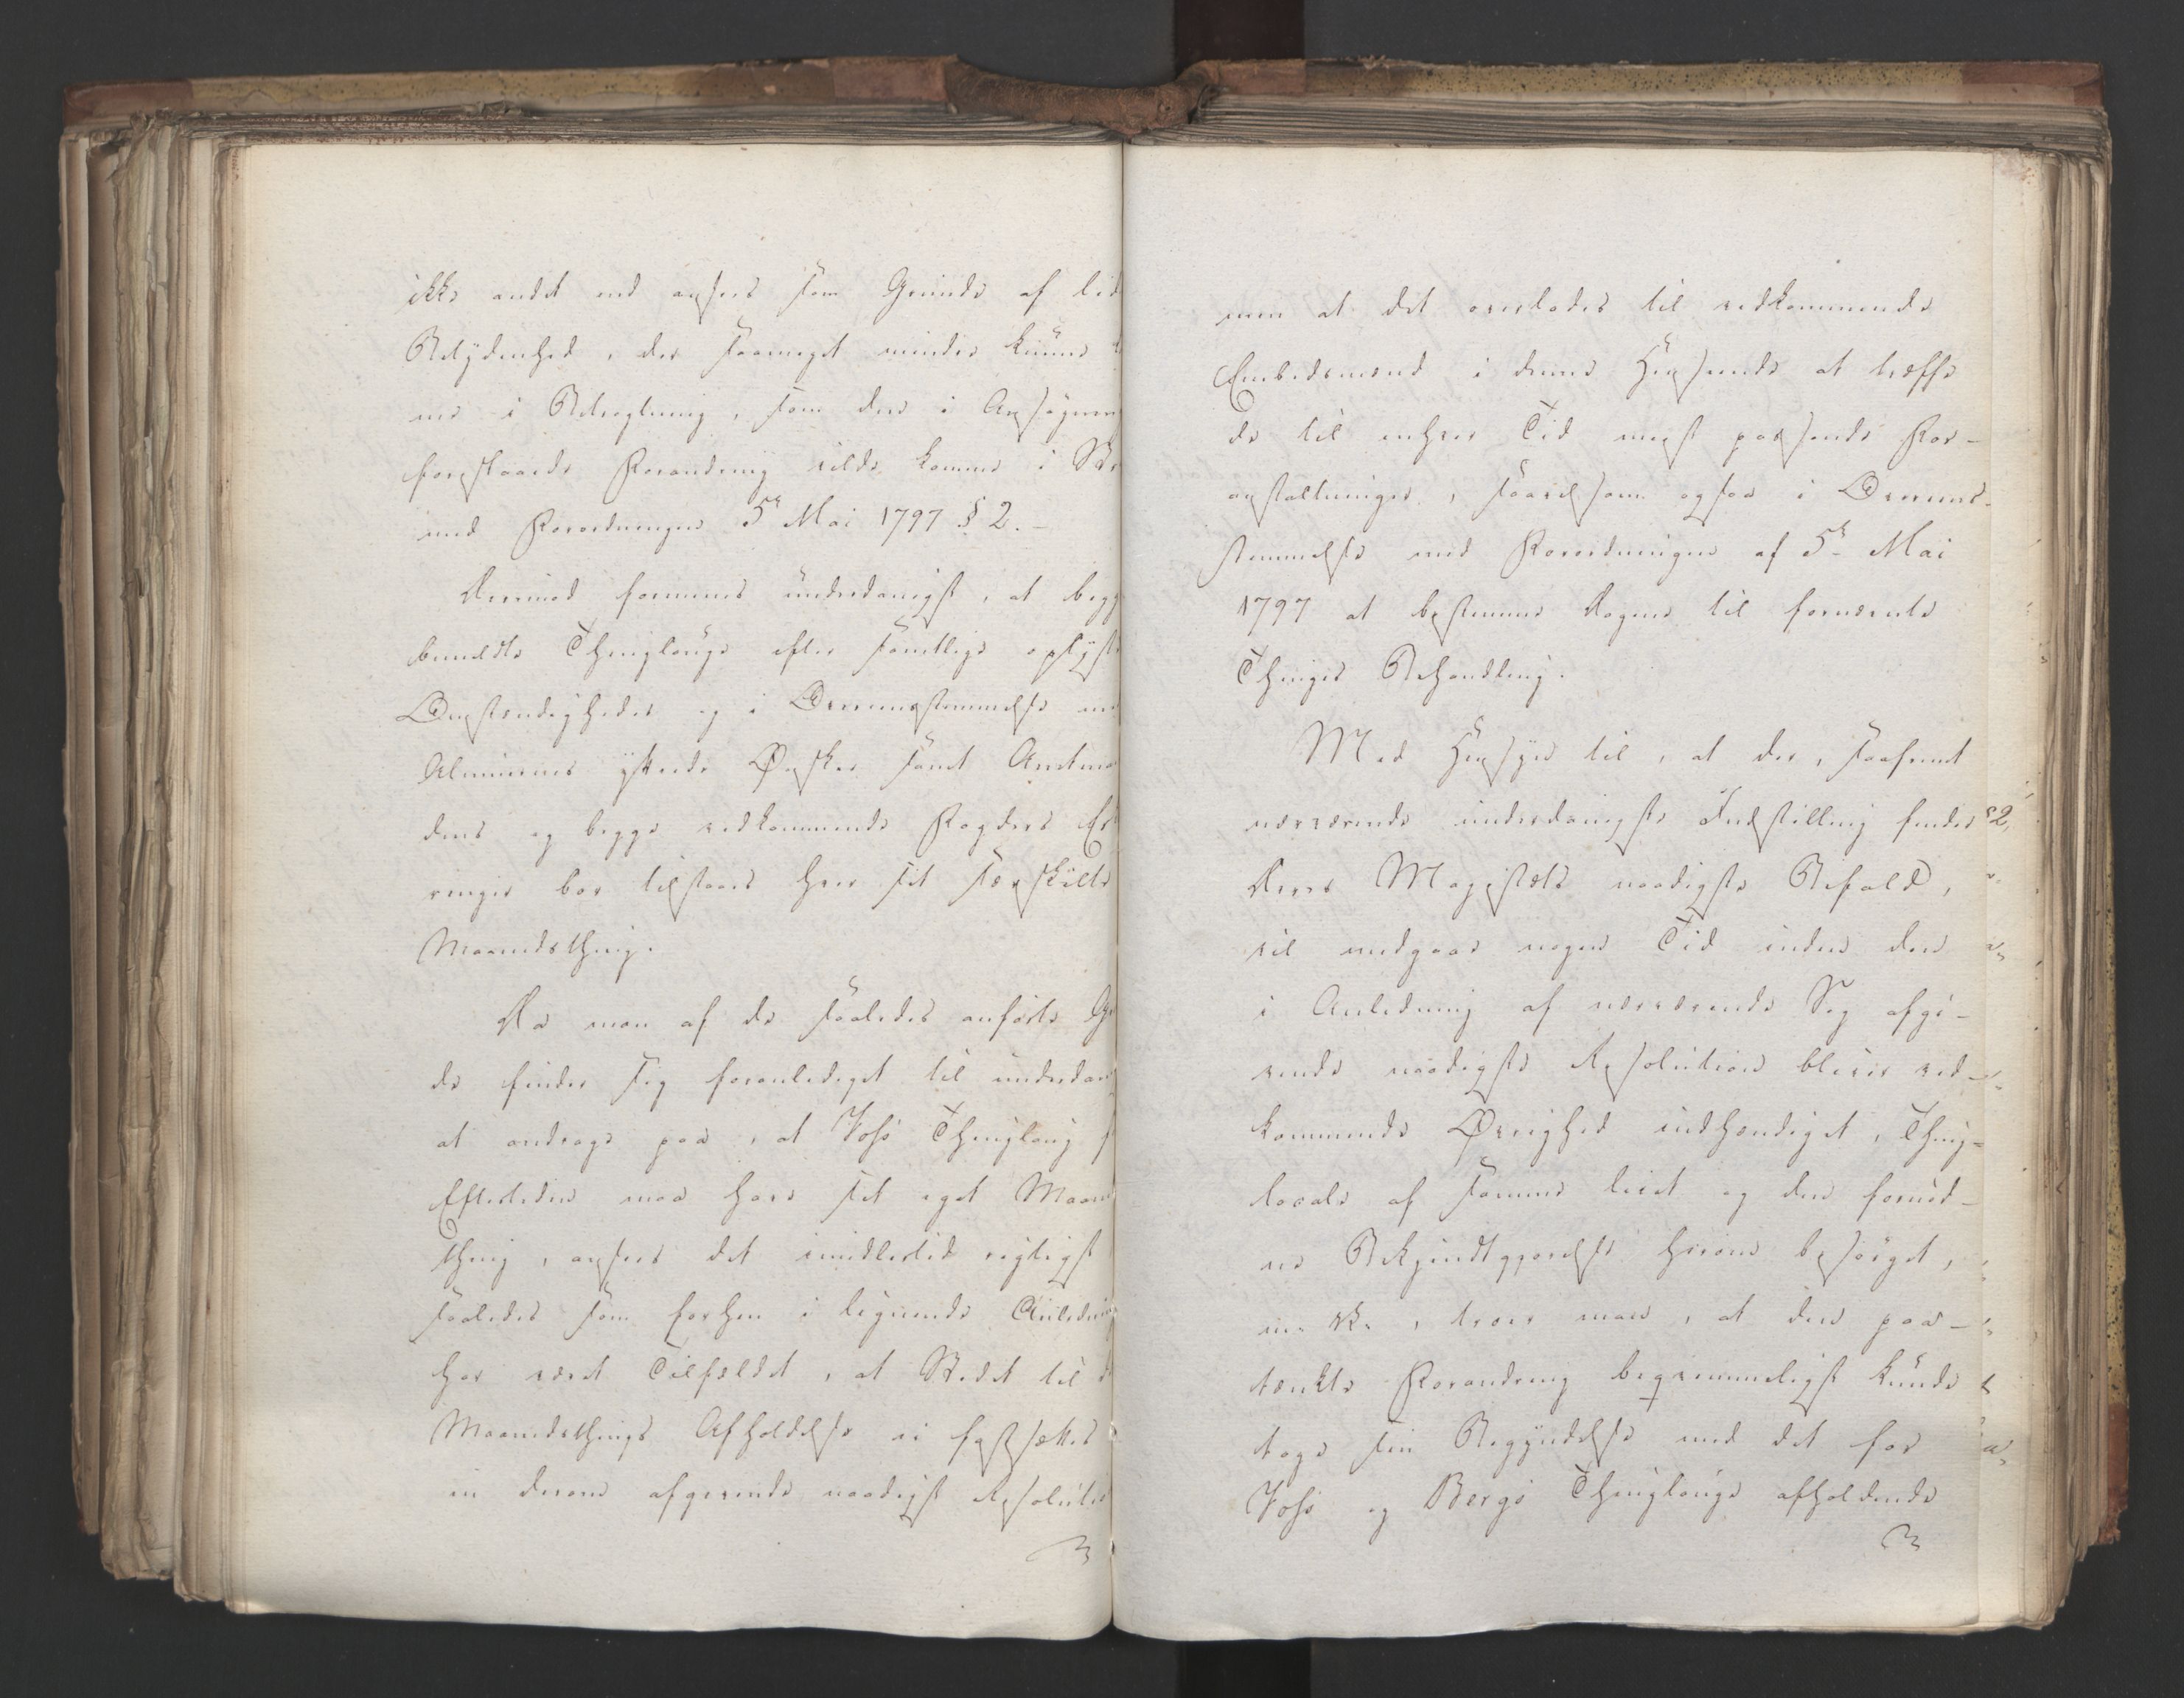 ikke andet end ansees som Grunde af lid
Betydenhed, der saameget mindre kunne
me i Betragtning, som den i Ansøgnin
foreslaaede Forandring vilde komme i St
med Forordningen 5te Mai 1797 § 2. -
Derimod formenes underdanigst, at begge
bemeldte Thinglauge efter samtlige oplyste
Omstændigheder og i Overensstemmelse me
Almuernes yttrede Ønsker samt Amtma
dens og begge vedkommende Fogders Er
ringer bør tilstaaes hver sit særskilte
Maanedsthing.
Da man af de saaledes anførte Gr
de finder sig foranlediget til underdan
at andrage paa, at Voss Thinglaug f
Eftertiden maa have sit eget Maan
thing, ansees det imidlertid rigtigst
saaledes som forhen i lignende Anledning
har været Tilfældet, at Stedet til d
Maanedsthings Afholdelse ei fastsættes
in derom afgivende naadigst Resolutio
men at det overlades til vedkommende
Embedsmænd i denne Henseende at træffe
de til enhver Tid meest passende For-
anstaltninger, saavelsom ogsaa i Overeens-
stemmelse med Forordningen af 5te Mai
1797 at bestemme Dagene til fornævnte
Thinges Behandling.
Med Hensyn til, at der, saafremt
nærværende underdanigste Indstilling finder
Deres Majestæts naadigste Bifald,
vil medgaae nogen Tid inden den
i Anledning af nærværende Sag afgi-
vende naadigste Resolution bliver ved-
kommende Øvrighed indhændiget, Thing-
locale af samme leiet og den fornød-
ne Bekjendtgjørelse herom besørget,
m. v., troer man, at den paa-
tænkte Forandring beqvemmeligst kunde
tage sin Begyndelse med det for
Voss og Bergs Thinglauge afholdende